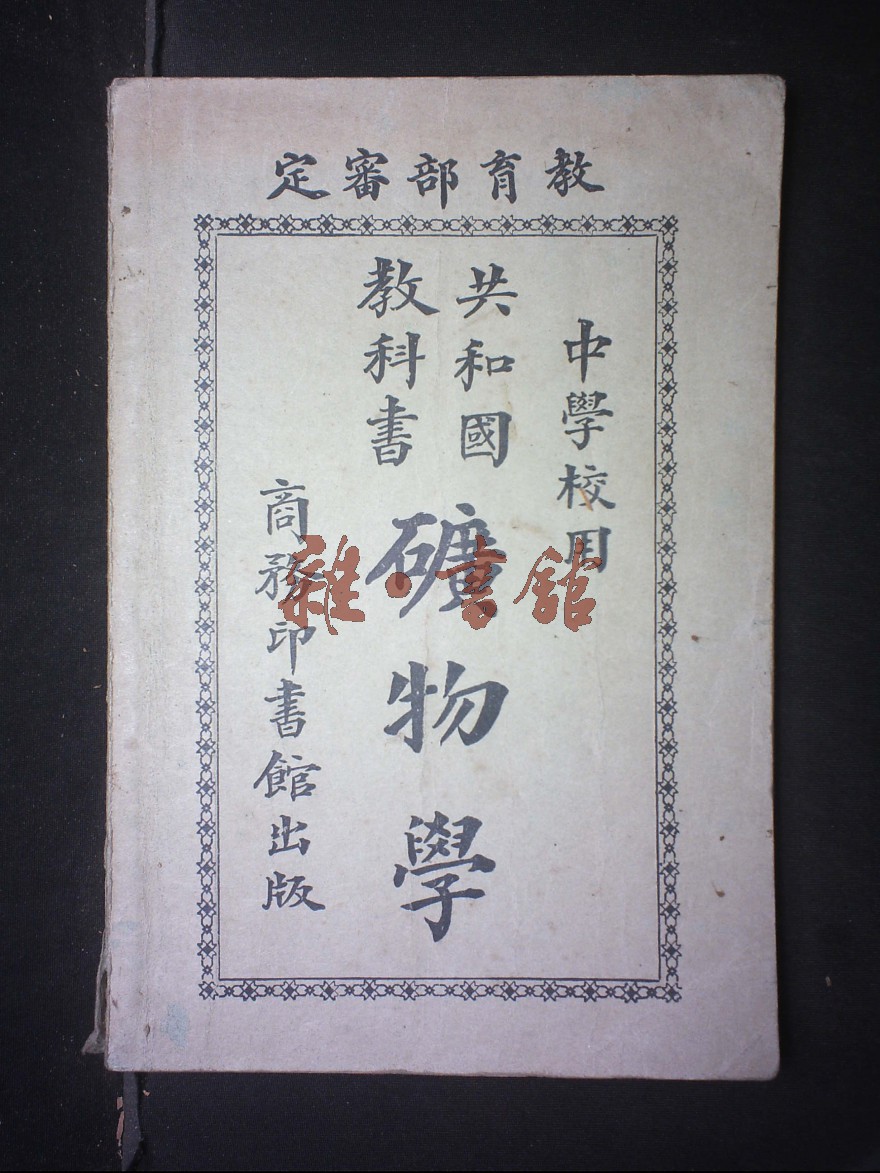 教育部審定
中學校用
共和國
教科書
礦物學
商務印書館出版
雜·書館